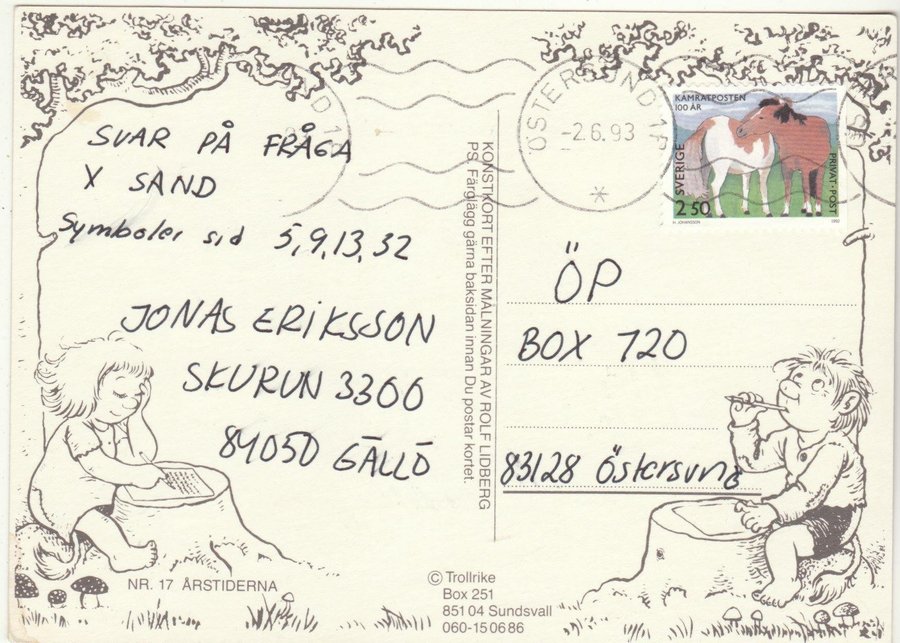 SVAR PÅ FRÅGA
X SAND
Symboler sid 5,9,13,32
JONAS ERIKSSON
SKURUN 3300
84050 GÄLLÖ
NR. 17 ÅRSTIDERNA
KONSTKORT EFTER MÅLNINGAR AV ROLF LIDBERG
PS. Färglägg gärna baksidan innan Du postar kortet.
© Trollrike
Box 251
851 04 Sundsvall
060-15 06 86
ÖSTERSUND 1
-2.6.93
KAMRATPOSTEN
100 ÅR
SVERIGE
2.50
PRIVAT-POST
H. JOHANSSON
1992
ÖP
BOX 720
83128 Östersund